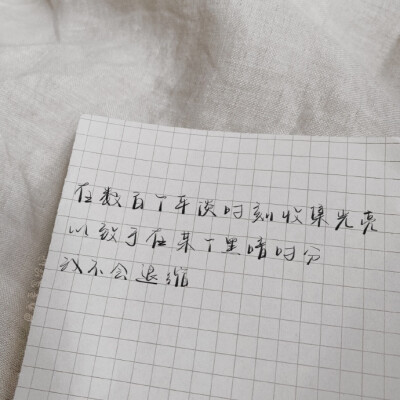 在数百个平淡时刻收集光亮
以致于在某个黑暗时分
我不会退缩